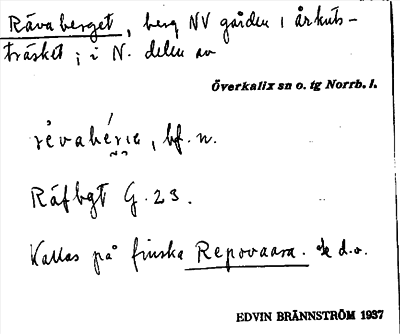 Räva berget, berg NV gården i Årkuts-
träsket; i N. delen av
Överkalix sn o. tg Norrb. l.
rèvabérıɛ, bf. n.
Räfbgt G. 23.
Kallas på finska Repovaara. d.o.
EDVIN BRÄNNSTRÖM 1937